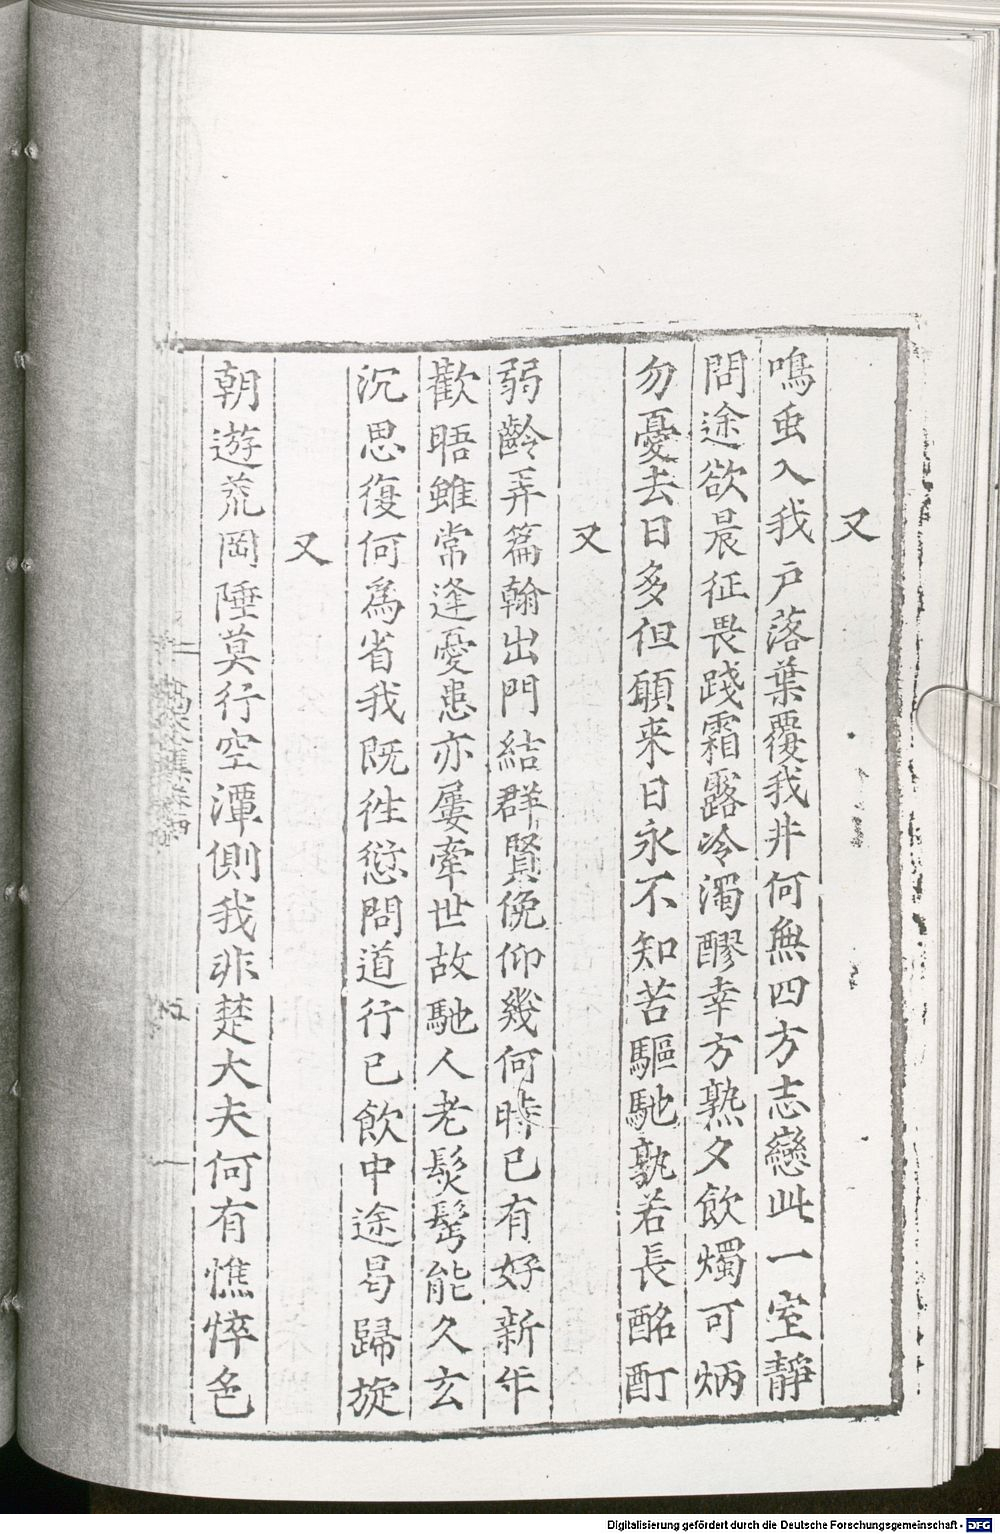 又
鳴虫入我戸落葉覆我井何無四方志戀此一室靜
問途欲晨征畏踐霜露冷濁醪幸方熟夕飲燭可炳
勿憂去日多但願来日永不知苦驅馳孰若長酩酊
又
弱齡弄篇翰出門結群賢俛仰幾何時已有好新年
歡晤雖常逢憂患亦屢牽世故馳人老髮髩能久玄
沉思復何為省我既徃愆問道行已飲中途曷歸旋
又
朝遊荒岡陲莫行空潭側我非楚大夫何有憔悴色
Digitalisierung gefördert durch die Deutsche Forschungsgemeinschaft - DFG